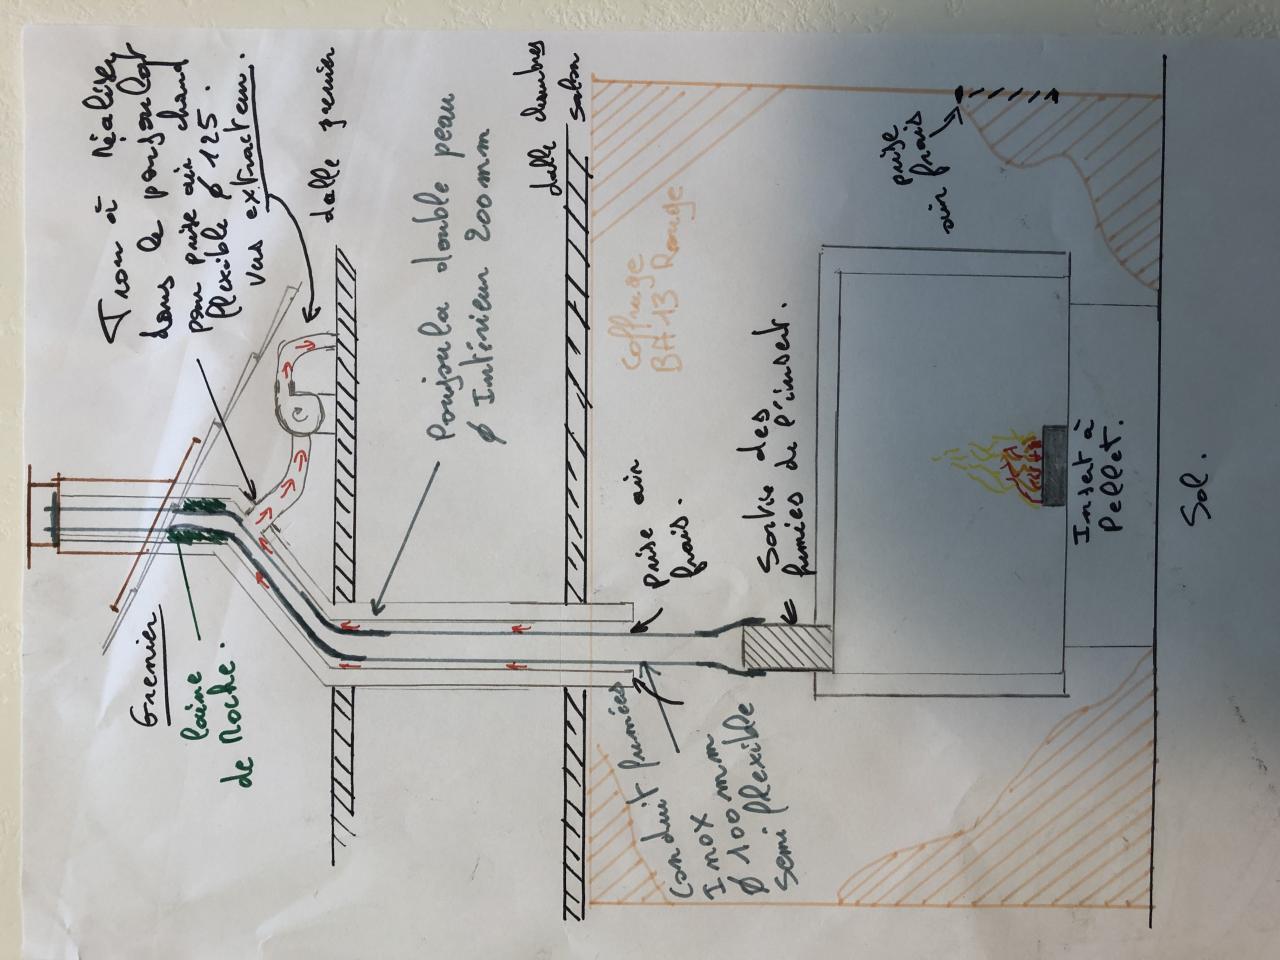 Trou à réaliser
dans le poujoulat
pour prise air chaud
flexible ø 125.
vers extracteur.
dalle grenier
Grenier
laine
de Roche.
Poujoula double peau
ø Intérieur 200mm
dalle chambres
salon
Coffrage
BA 13 Rouge
prise
air frais
prise air
frais.
Sortie des
fumées de l'insert.
Conduit fumées
Inox
ø 100 mm
semi flexible
Insert à
Pellet.
Sol.